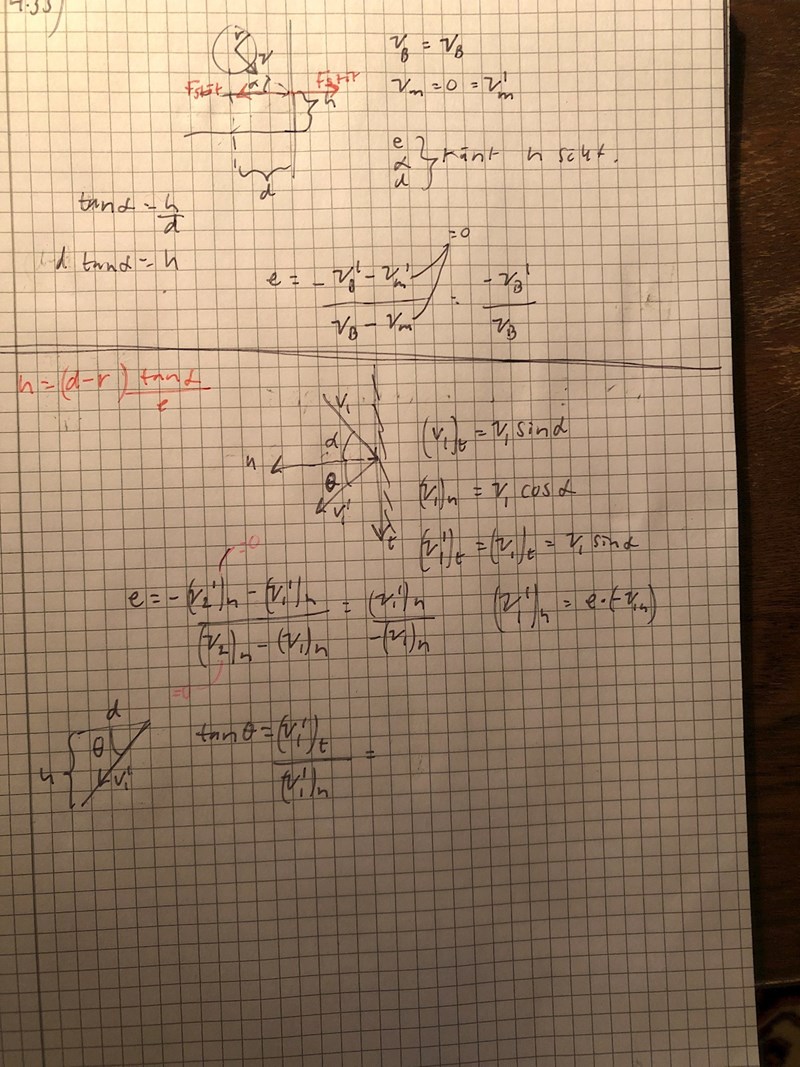 4.33)
r
v
v_B = v_B
Fstöt α Fstöt
h
v_m = 0 = v_m'
d
e
α } känt h sökt.
d
tanα = h/d
d tanα = h
= 0
e = - (v_B' - v_m')/(v_B - v_m) = -v_B'/v_B
h = (d-r) tanα/e
v_1
α
n
θ
v_1'
t
(v_1)_t = v_1 sinα
(v_1)_n = v_1 cosα
(v_1')_t = (v_1)_t = v_1 sinα
=0
e = - ((v_2')_n - (v_1')_n)/((v_2)_n - (v_1)_n) = (v_1')_n/-(v_1)_n
(v_1')_n = e·(-v_1n)
=0
d
θ
h
v_1'
tanθ = (v_1')_t/(v_1')_n =